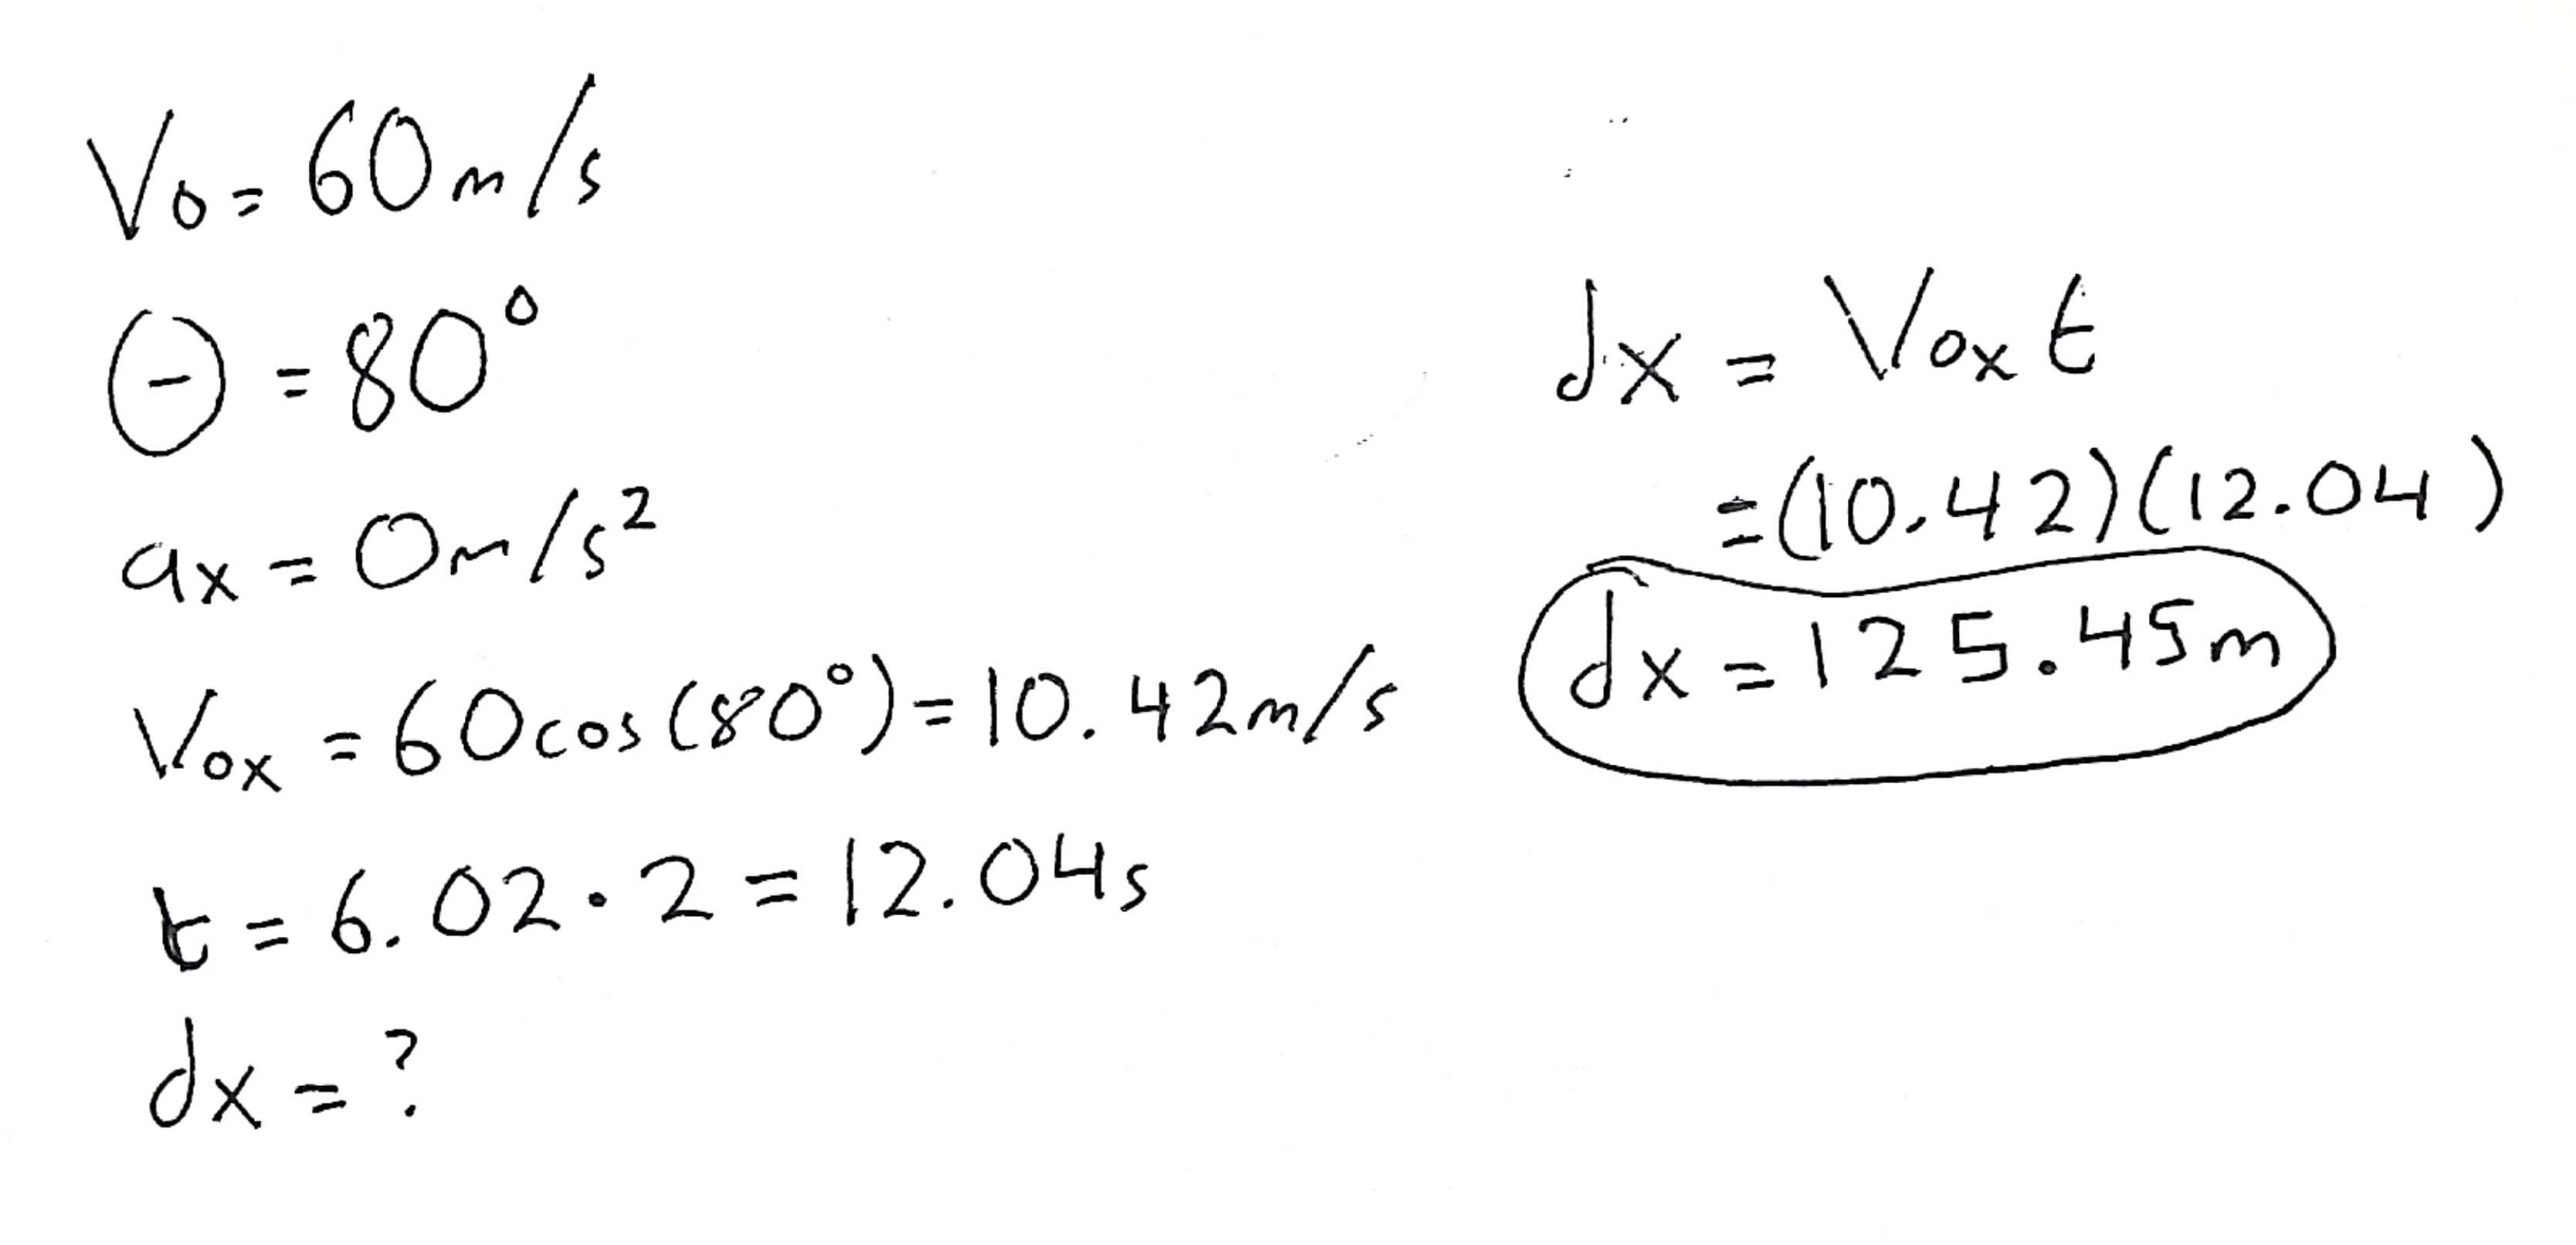 Vo = 60m/s
θ = 80°
ax = 0m/s²
Vox = 60cos(80°) = 10.42m/s
t = 6.02·2 = 12.04s
dx = ?
dx = Voxt
= (10.42)(12.04)
dx = 125.45m